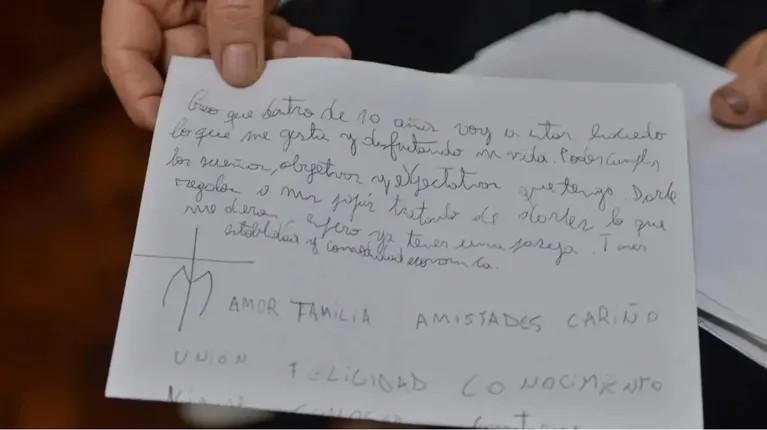 Creo que dentro de 10 años voy a estar haciendo
lo que me gusta y disfrutando mi vida. Poder cumplir
los sueños, objetivos y expectativas que tengo Darle
regalos a mis papis tratando de darles lo que
me dieron, espero ya tener una pareja. Tener
estabilidad y comodidad economica.
AMOR FAMILIA AMISTADES CARIÑO
UNION FELICIDAD CONOCIMIENTO